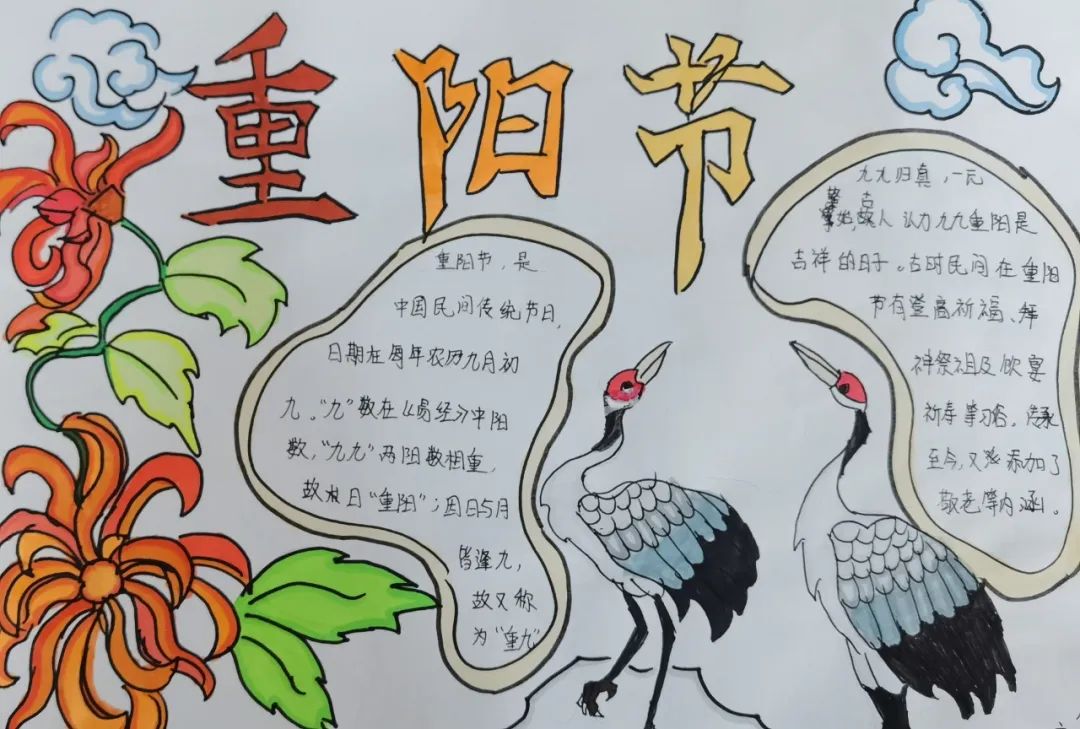 重阳节
重阳节，是
中国民间传统节日，
日期在每年农历九月初
九。“九”数在《易经》中阳
数，“九九”两阳数相重，
故 日“重阳”；因日与月
皆逢九，
故又称
为“重九”
九九归真，一元
肇始，古人认为九九重阳是
吉祥的日子。古时民间在重阳
节有登高祈福、拜
神祭祖及饮宴
祈寿等习俗。传承
至今，又添加了
敬老等内涵。